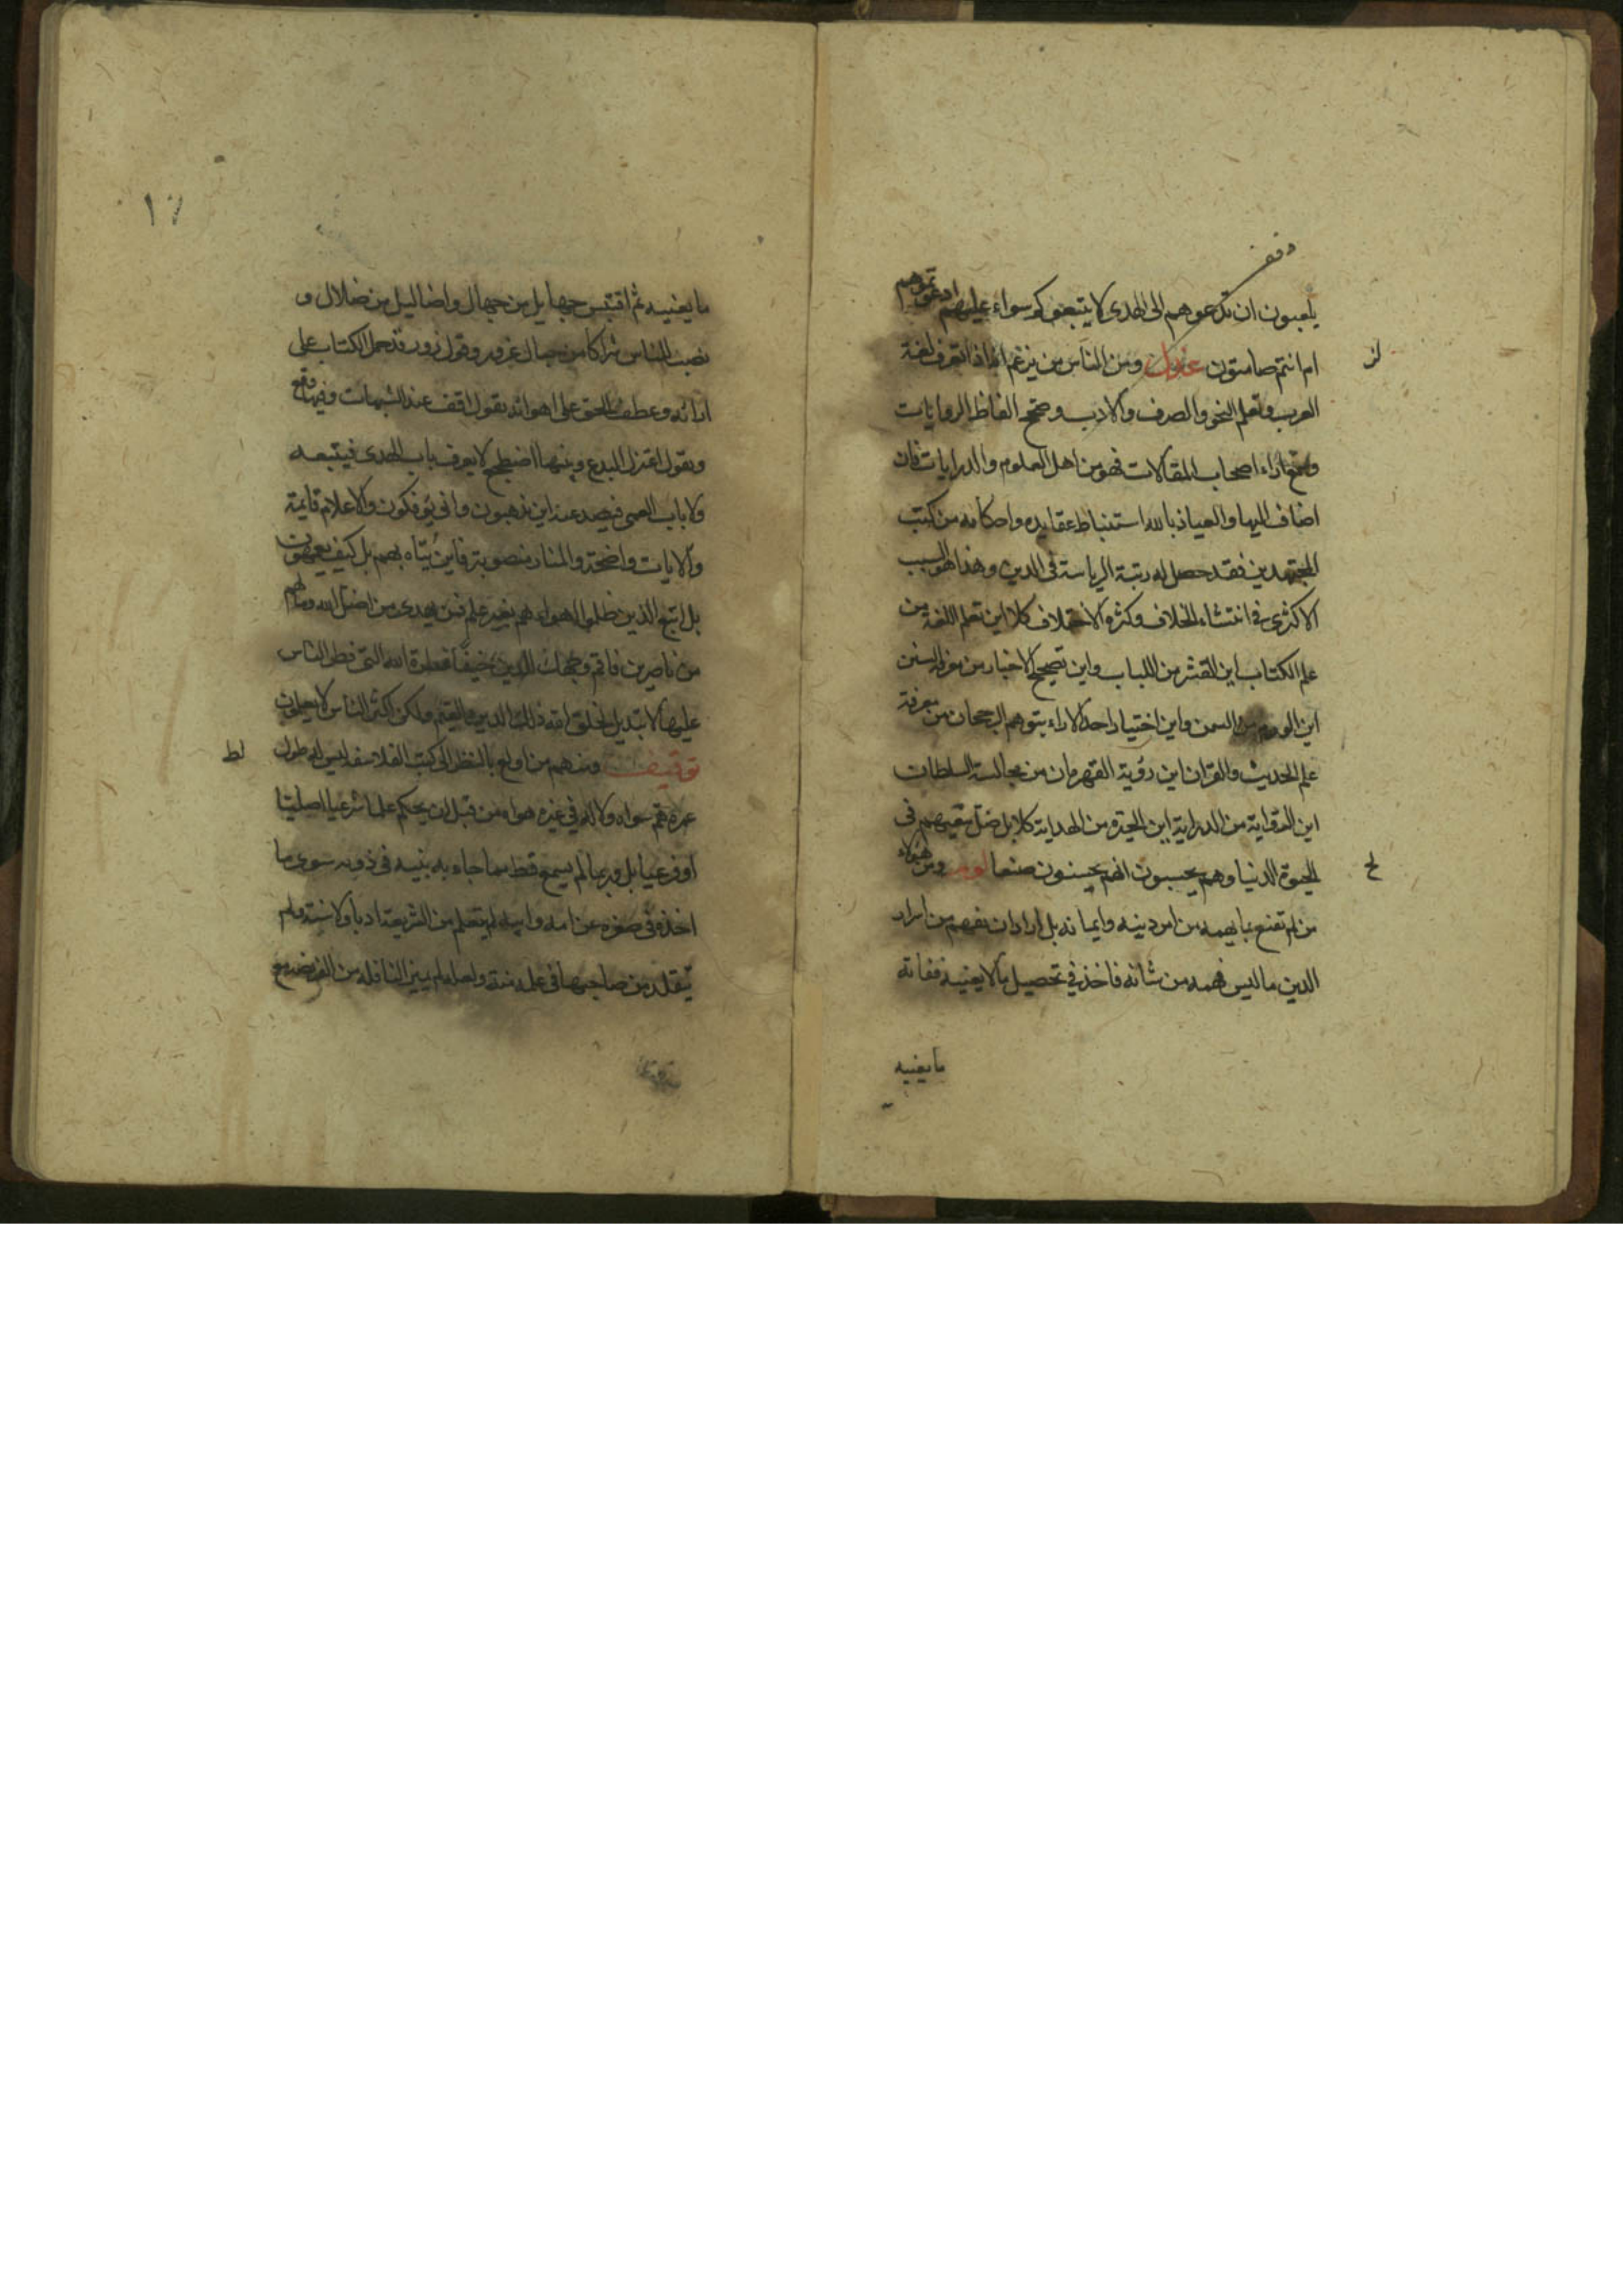 وقف
يلعبون ان تدعوهم الى الهدى لا يتبعوكم سواء عليهم ادعوتموهم
ام انتم صامتون ومن الناس من يزعم انه اذا تعرف لغة
لز
العرب وتعلم النحو والصرف والادب وصحح الفاظ الروايات
وتتبع آراء اصحاب المقالات فهو من اهل العلوم والدرايات فان
اضاف اليها والعياذ بالله استنباط عقايده واحكامه من كتب
المجتهدين فقد حصل له رتبة الرياسة في الدين وهذا هو السبب
الاكثرى في انتشاء الخلاف وكثرة الاختلاف كلا اين تعلم اللغة من
علم الكتاب اين القشر من اللباب واين تصحيح الاخبار من معرفة السنن
اين الورم من السمن واين اختيار احد الاراء بتوهم الرجحان من معرفة
علم الحديث والقران اين رؤية القهرمان من مجالسة السلطان
اين الغواية من الدراية اين الحيرة من الهداية كلا بل ضل سعيهم في
الحيوة الدنيا وهم يحسبون انهم يحسنون صنعا ومن هؤلاء
لح
من لم تقنع بما يهمه من امر دينه وايمانه بل اراد ان يفهم من اسرار
الدين ما ليس فهمه من شانه فاخذ في تحصيل ما لا يعنيه ففاته
ما يغنيه
١٧
ما يغنيه ثم اقتبس جهايل من جهال واضاليل من ضلال و
نصب للناس شراكا من حبال غرور وقول زور قد حمل الكتاب على
ارائه وعطف الحق على اهوائه يقول اقف عند الشبهات وفيها وقع
ويقول اعتزل البدع وبينها اضطجع لا يعرف باب الهدى فيتبعه
ولا باب العمى فيصد عنه اين تذهبون وانى تؤفكون والاعلام قايمة
والايات واضحة والمنار منصوبة فاين يتاه بهم بل كيف يعمهون
بل اتبع الذين ظلموا اهواءهم بغير علم فمن يهدى من اضل الله وما لهم
من ناصرين فاقم وجهك للدين حنيفا فطرة الله التى فطر الناس
عليها لا تبديل لخلق الله ذلك الدين القيم ولكن اكثر الناس لا يعلمون
توقيف ومنهم من اولع بالنظر الى كتب الفلاسفه ليس له طول
لط
عمره هم سواه ولا له في غيره هواه من قبل ان يحكم علما شرعيا اصليا
او فرعيا بل وربما لم يسمع قط مما جاء به نبيه في ذويه سوى ما
اخذه في صغره عن امه وابيه لم يتعلم من الشريعة ادبا ولا سنة ولم
يتقلد من صاحبها في علم منة ولعله لم يميز النافله من الفريضه مع